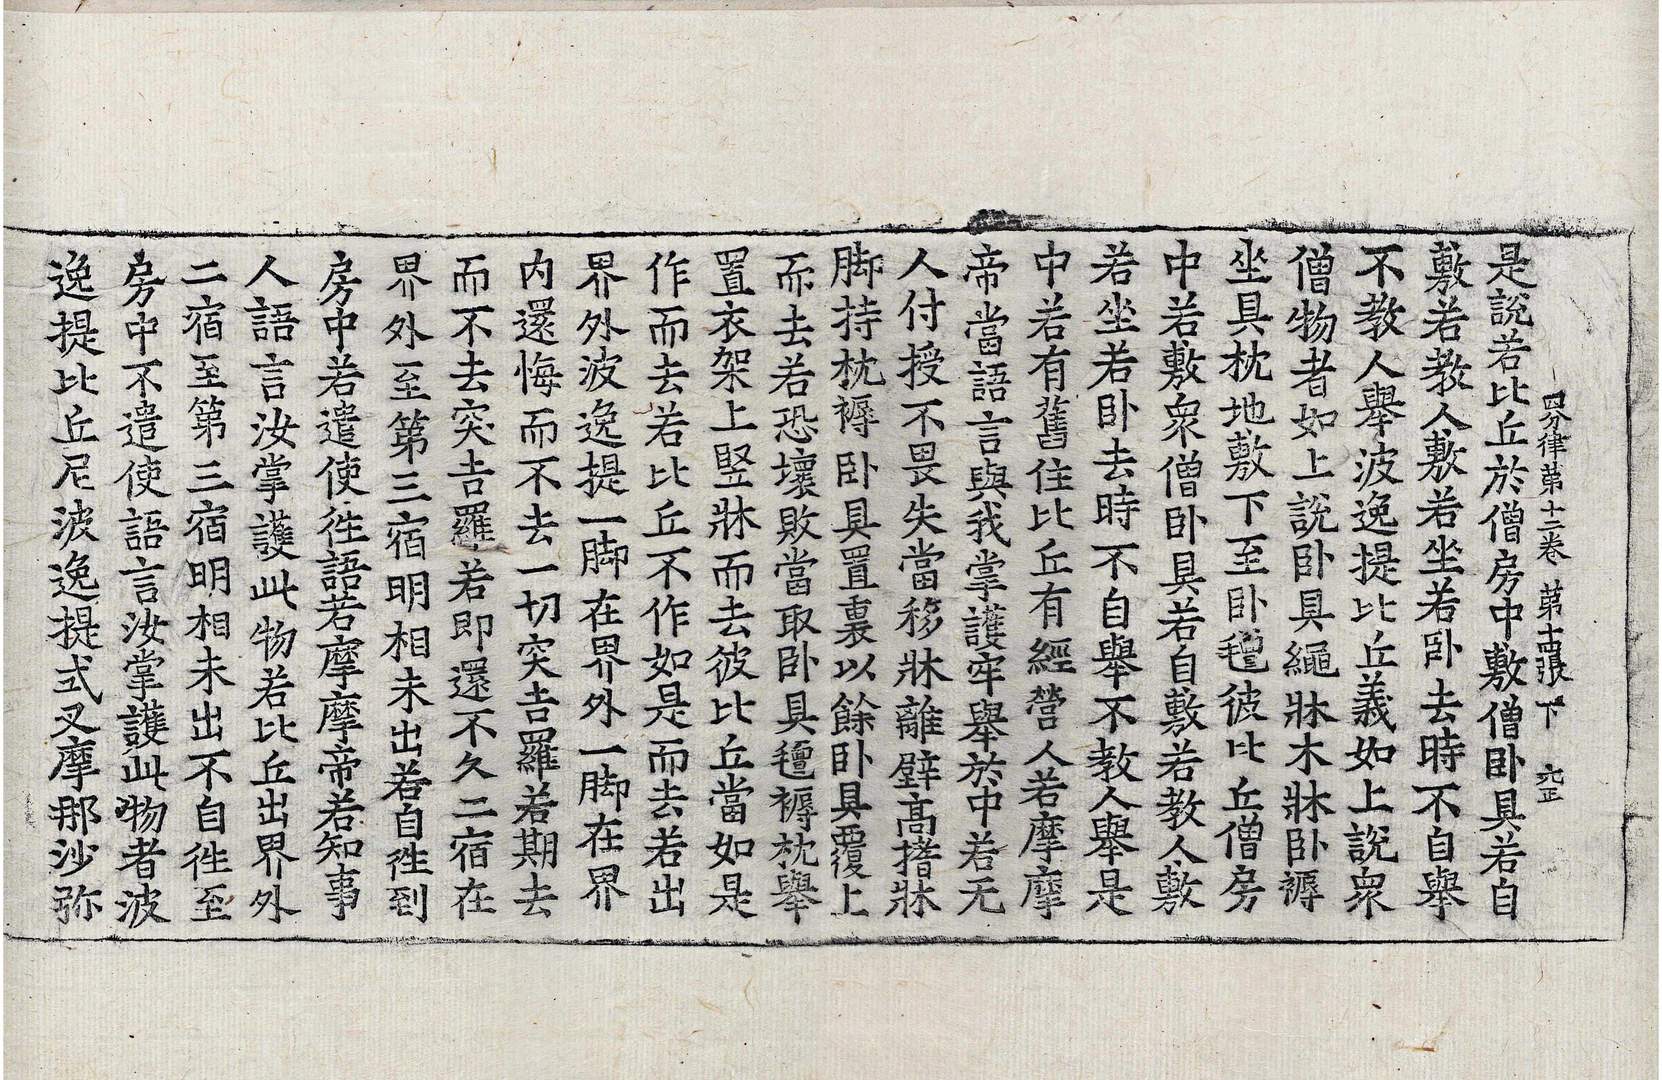 四分律第十二卷　第十四張　下　㐬正
是說若比丘於僧房中敷僧卧具若自
敷若教人敷若坐若卧去時不自舉
不教人舉波逸提比丘義如上說衆
僧物者如上說卧具繩牀木牀卧褥
坐具枕地敷下至卧氊彼比丘僧房
中若敷衆僧卧具若自敷若教人敷
若坐若卧去時不自舉不教人舉是
中若有舊住比丘有經營人若摩摩
帝當語言與我掌護牢舉於中若无
人付授不畏失當移牀離壁高揩牀
脚持枕褥卧具置裏以餘卧具覆上
而去若恐壞敗當取卧具氊褥枕舉
置衣架上竪牀而去彼比丘當如是
作而去若比丘不作如是而去若出
界外波逸提一脚在界外一脚在界
内還悔而不去一切突吉羅若期去
而不去突吉羅若即還不久二宿在
界外至第三宿明相未出若自徃到
房中若遣使徃語若摩摩帝若知事
人語言汝掌護此物若比丘出界外
二宿至第三宿明相未出不自徃至
房中不遣使語言汝掌護此物者波
逸提比丘尼波逸提式叉摩那沙弥